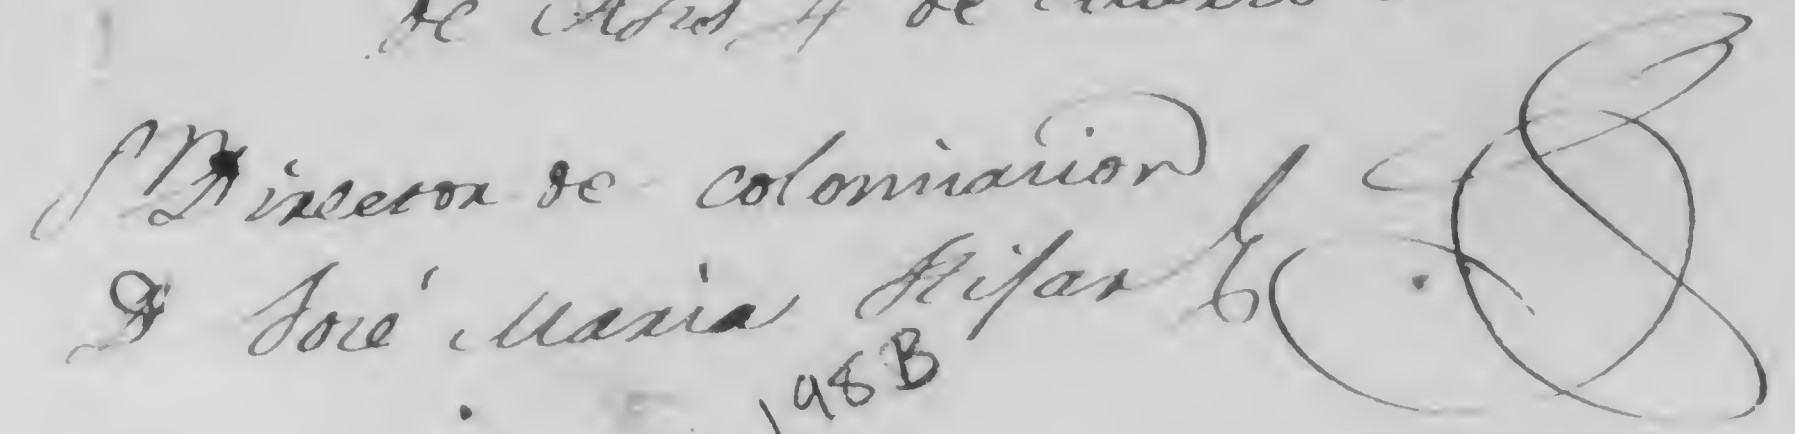 de
de
S Director de coloniacion
D José Maria Hijar
198B